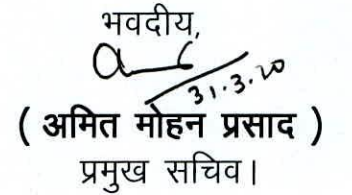 भवदीय,
31.3.20
( अमित मोहन प्रसाद )
प्रमुख सचिव।